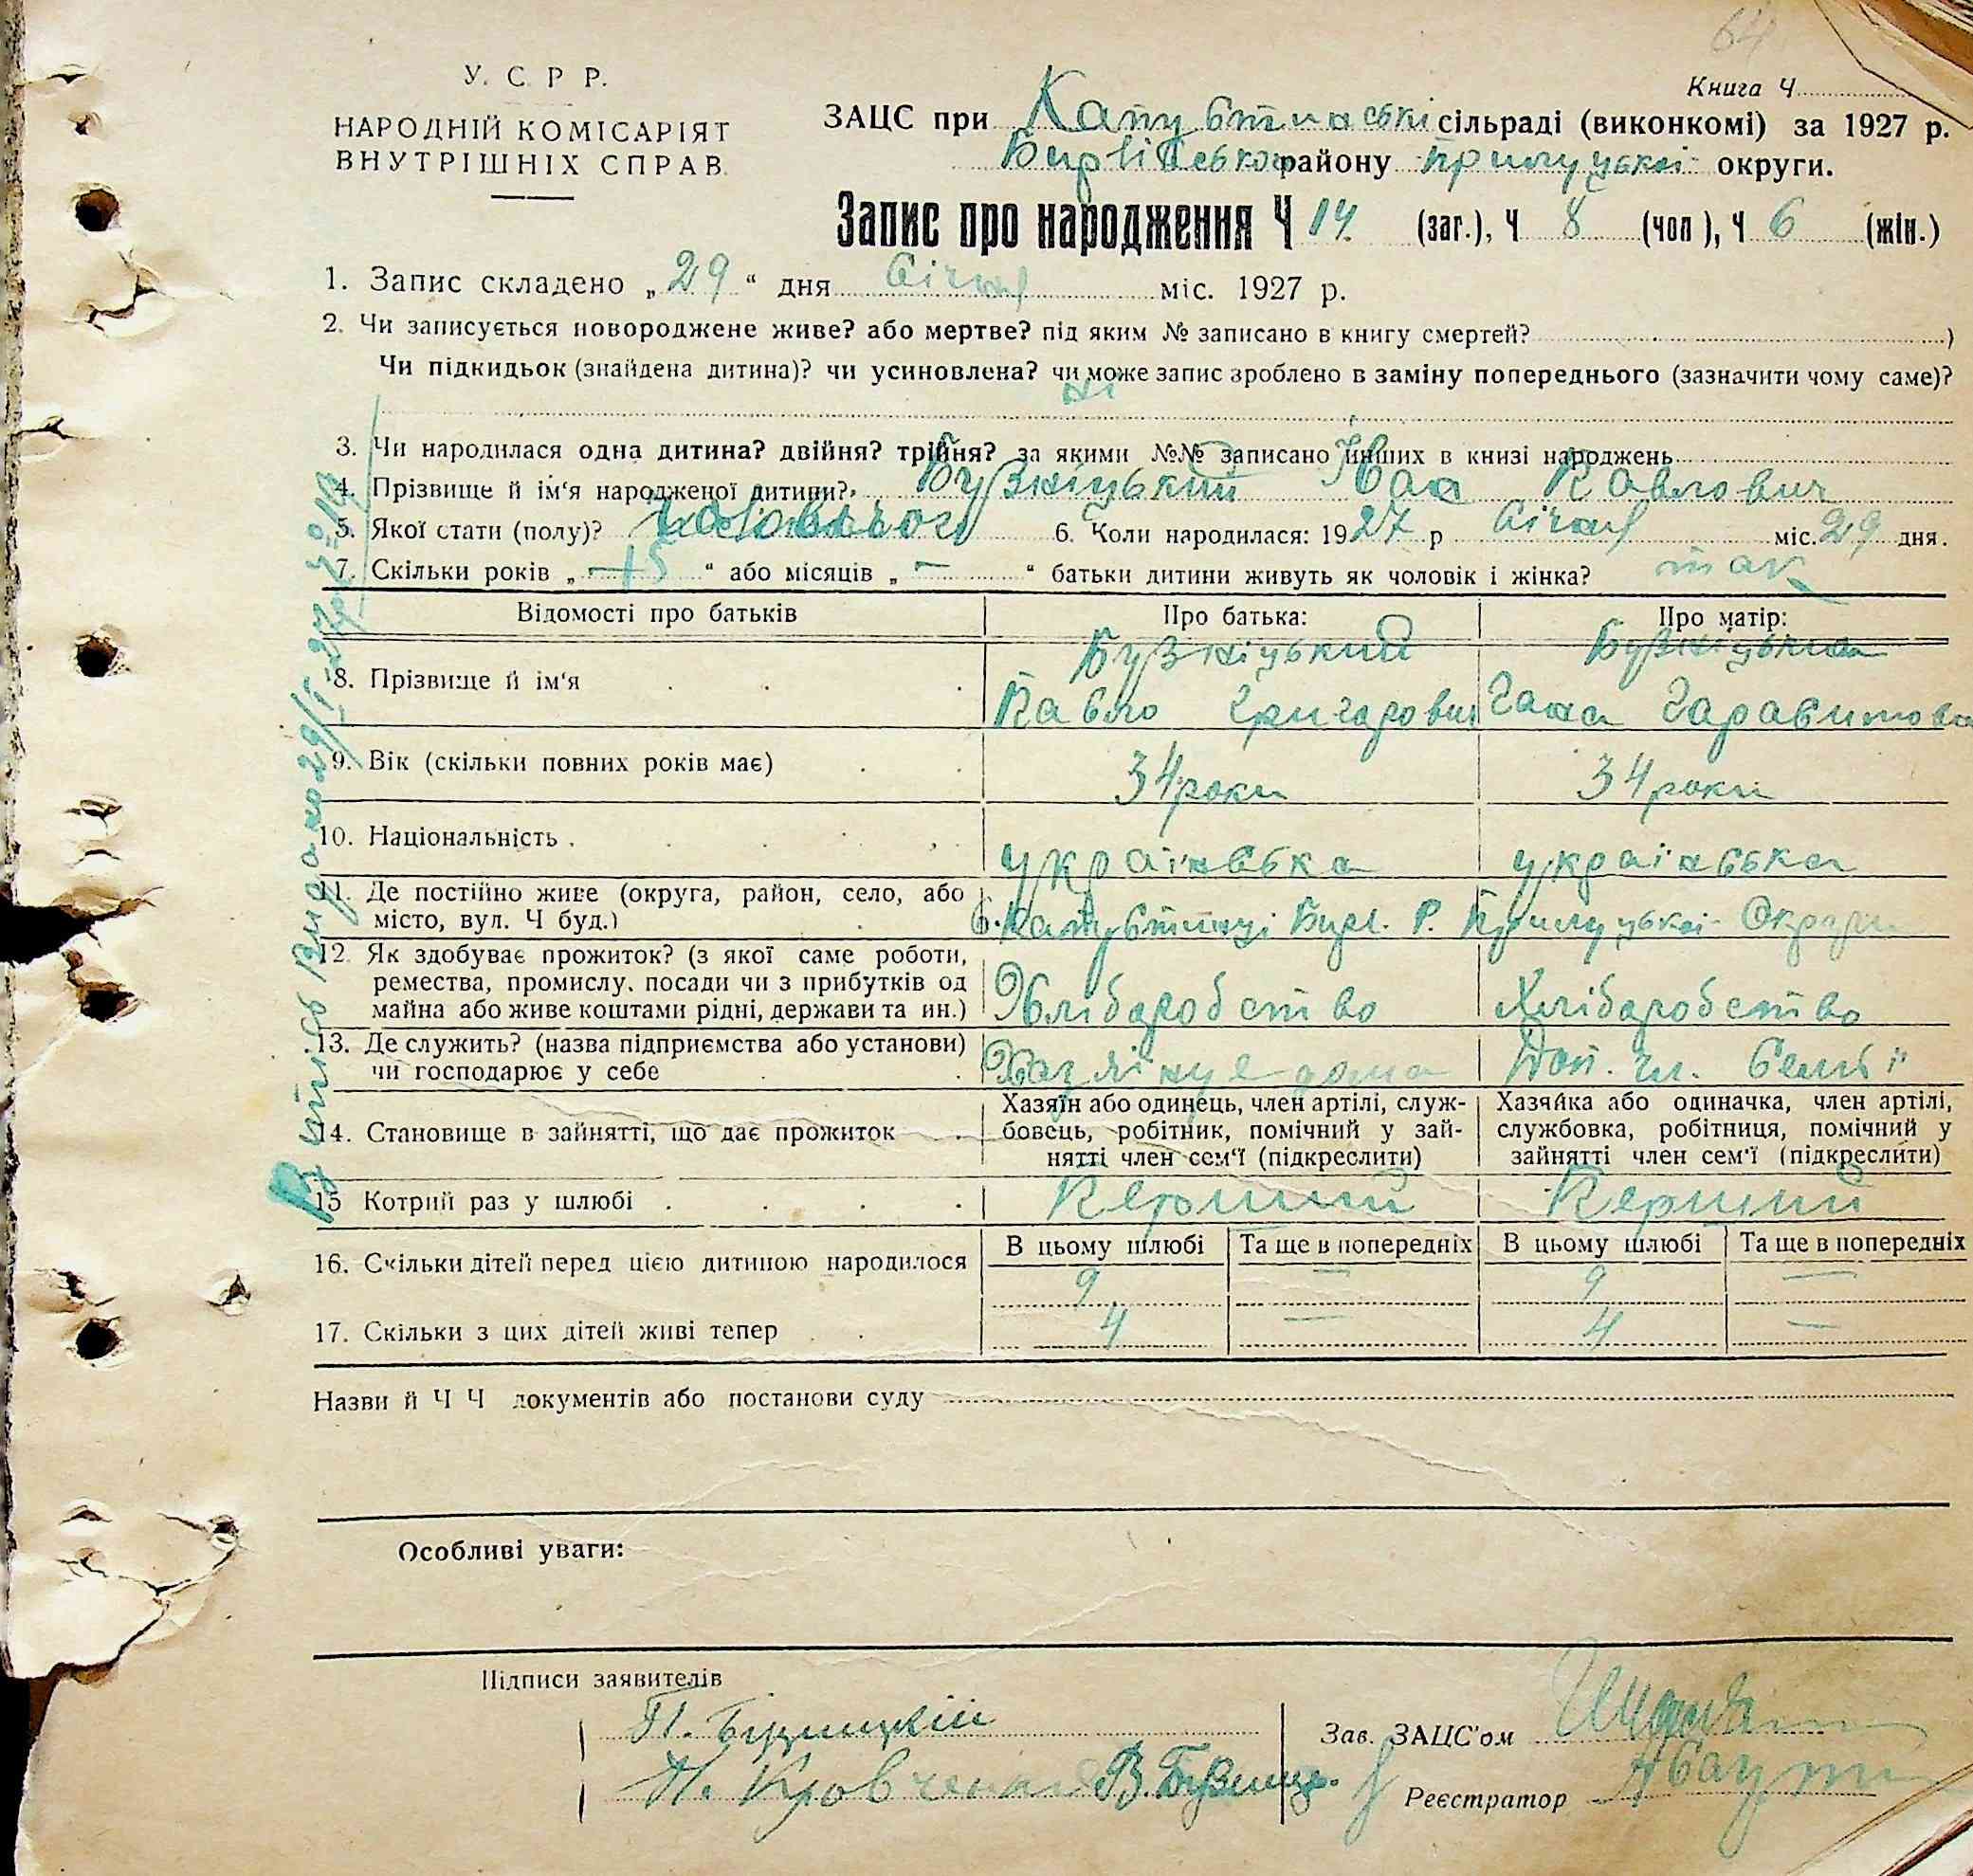 64
У. С. Р. Р.
НАРОДНІЙ КОМІСАРІЯТ
ВНУТРІШНІХ СПРАВ
Книга Ч
ЗАЦС при Капустинські сільраді (виконкомі) за 1927 р.
району Прилуцької округи.
Запис про народження Ч 14 (заг.), Ч 8 (чол), Ч 6 (жін.)
1. Запис складено „29“ дня Січня міс. 1927 р.
2. Чи записується новороджене живе? або мертве? під яким № записано в книгу смертей? )
Чи підкидьок (знайдена дитина)? чи усиновлена? чи може запис зроблено в заміну попереднього (зазначити чому саме)?
ні
3. Чи народилася одна дитина? двійня? трійня? за якими №№ записано інших в книзі народжень
4. Прізвище й ім'я народженої дитини? Бузніцький Іван Павлович
5. Якої стати (полу)? 6. Коли народилася: 1927 р Січня міс. 29 дня.
7. Скільки років „15“ або місяців „—“ батьки дитини живуть як чоловік і жінка? так
Відомості про батьків Про батька: Про матір:
8. Прізвище й ім'я Бузніцький Бузніцька
Павло Григорович Ганна
9. Вік (скільки повних років має) 34 роки 34 роки
10. Національність українська українська
11. Де постійно живе (округа, район, село, або
місто, вул. Ч буд.) с. Капустинці Бирл. Р. Прилуцької Округи
12. Як здобуває прожиток? (з якої саме роботи,
ремества, промислу, посади чи з прибутків од
майна або живе коштами рідні, держави та ин.) Хліборобство Хліборобство
13. Де служить? (назва підприємства або установи)
чи господарює у себе дома Доп. чл. семьї
14. Становище в зайнятті, що дає прожиток
Хазяїн або одинець, член артілі, служ-
бовець, робітник, помічний у зай-
нятті член сем'ї (підкреслити)
Хазяйка або одиначка, член артілі,
службовка, робітниця, помічний у
зайнятті член сем'ї (підкреслити)
15 Котрий раз у шлюбі Перший Перший
В цьому шлюбі Та ще в попередніх В цьому шлюбі Та ще в попередніх
16. Скільки дітей перед цією дитиною народилося 9 — 9 —
17. Скільки з цих дітей живі тепер 4 — 4 —
Назви й Ч Ч документів або постанови суду
Особливі уваги:
Підписи заявителів
П.
Зав. ЗАЦС'ом
Реєстратор
Витяг видано 29/I-27р.